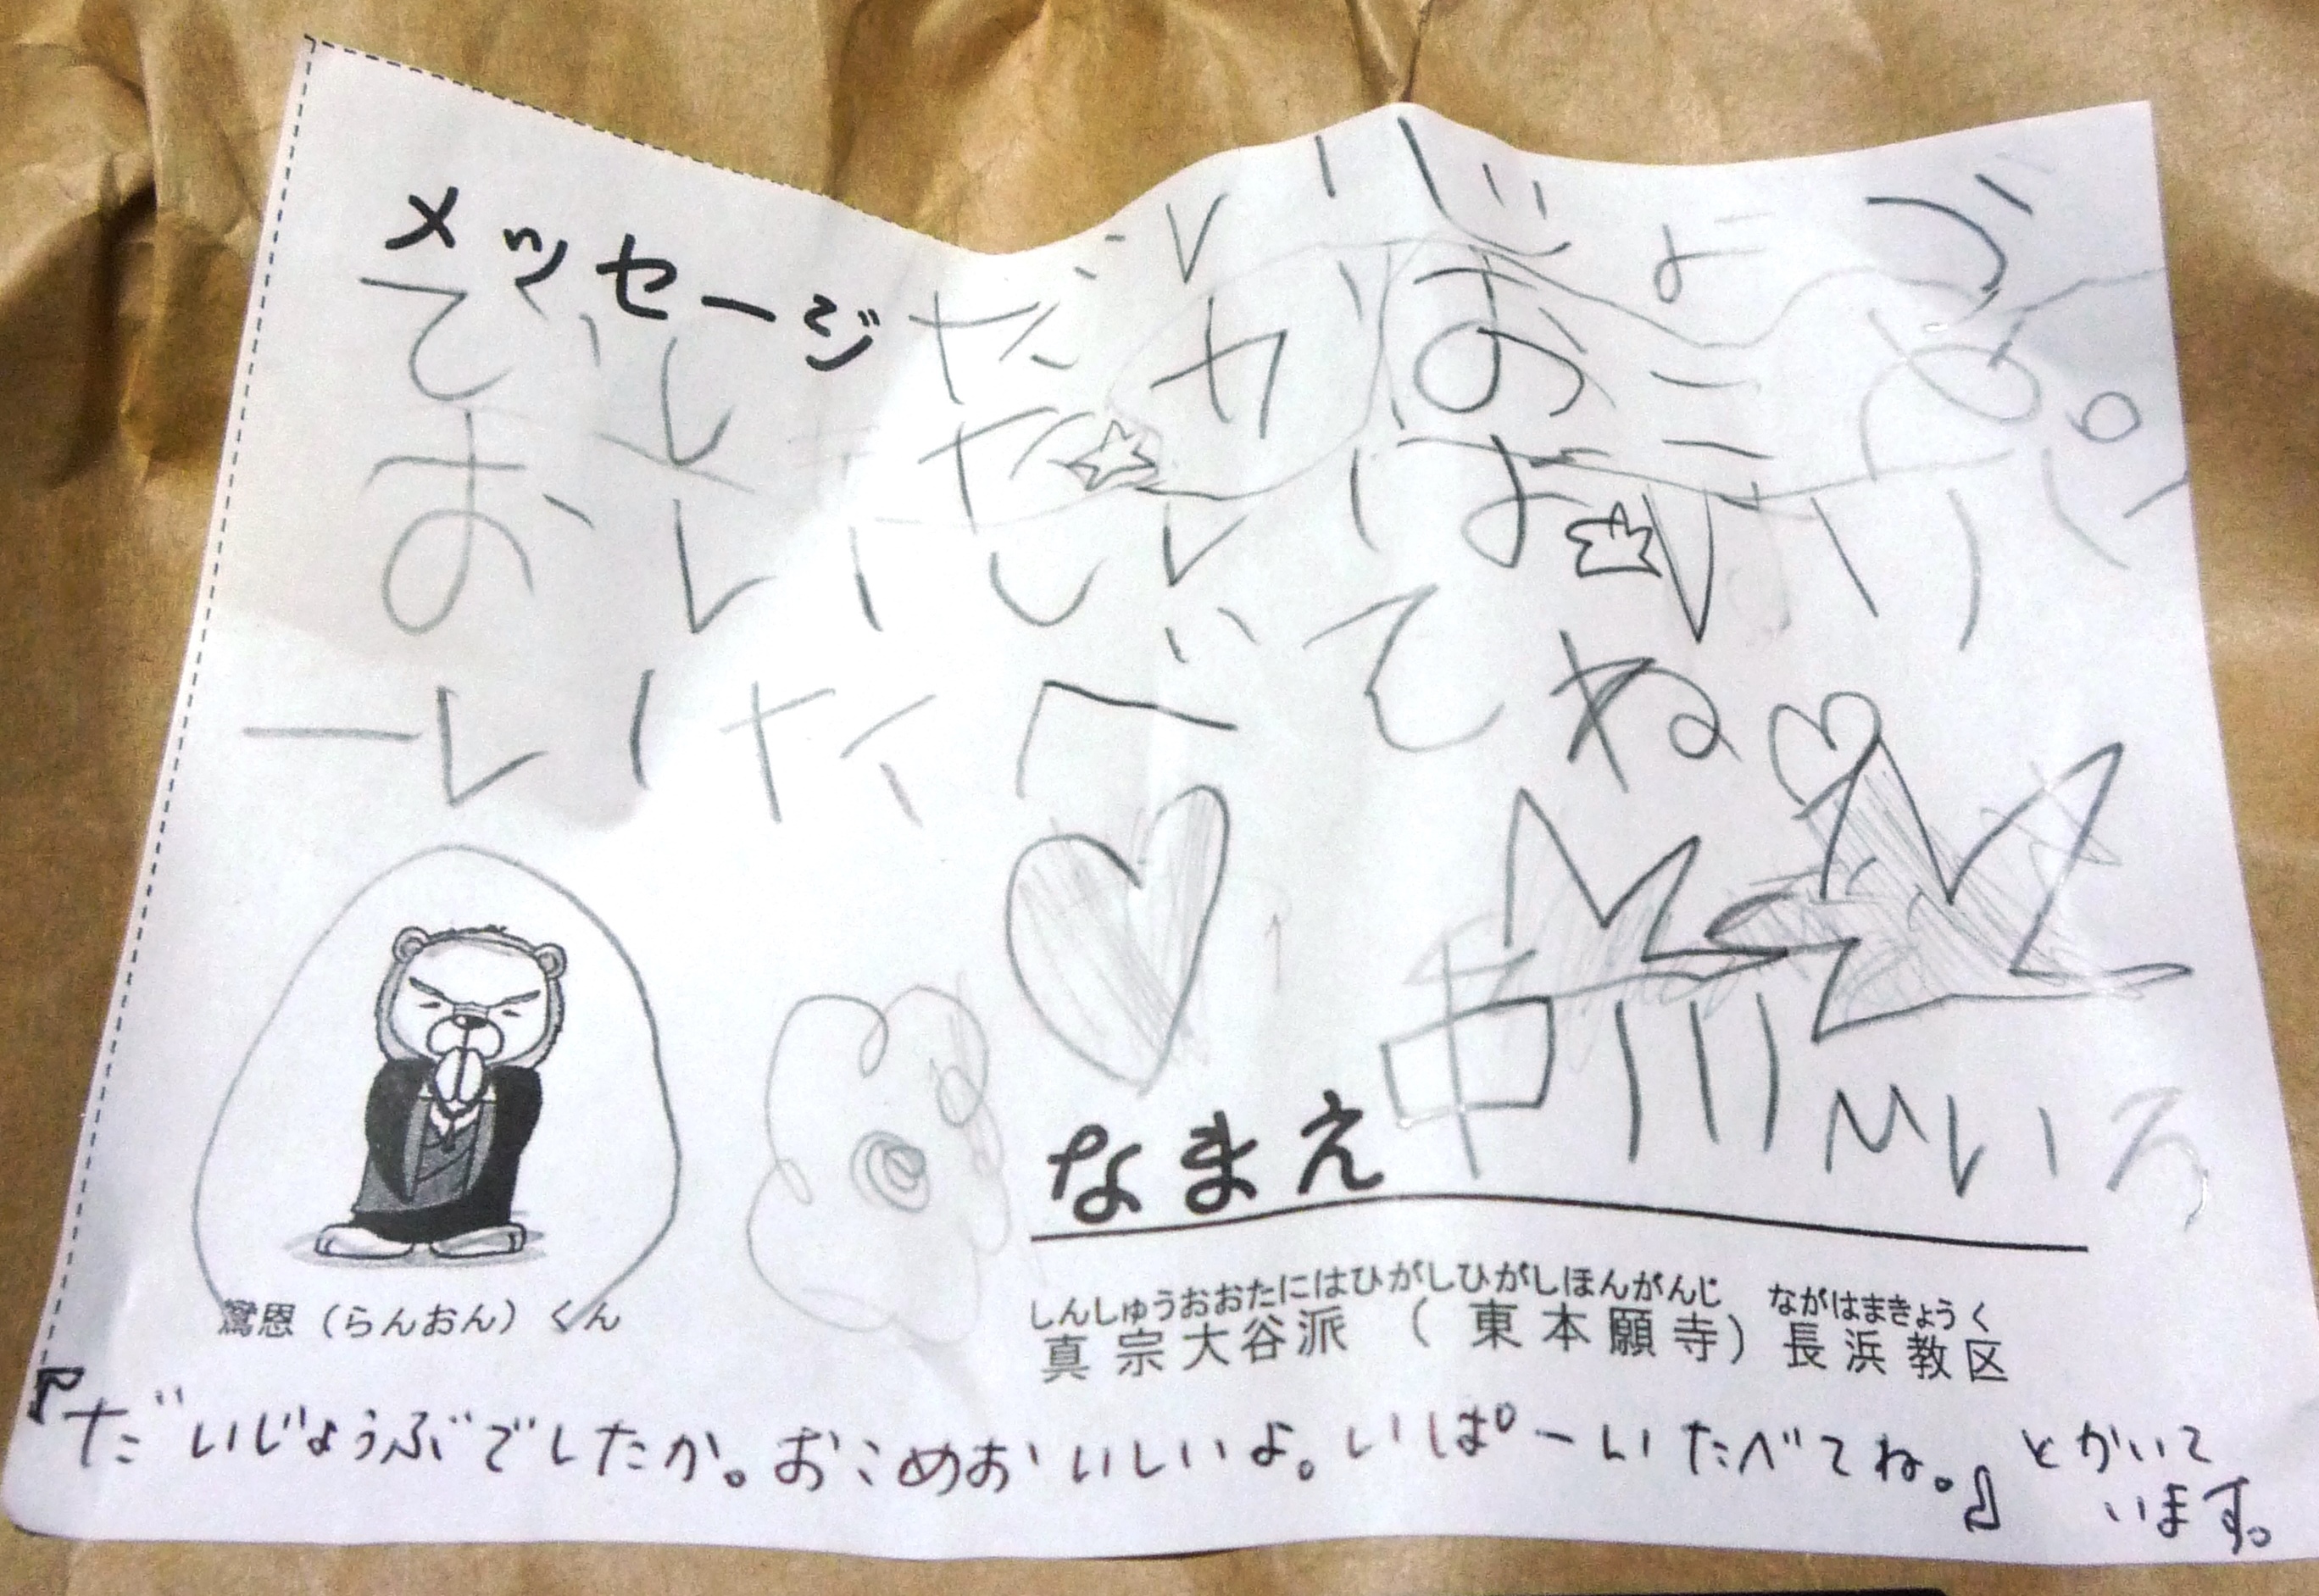 メッセージ
だいじょうぶ
でしたかおこめ。
おいしいよ いぱ
ーいたべてね
なまえ 中川 いいろ
鸞恩（らんおん）くん
しんしゅうおおたにはひがしひがしほんがんじ ながはまきょうく
真宗大谷派（東本願寺）長浜教区
『だいじょうぶでしたか。おこめおいしいよ。いぱーいたべてね。』とかいて
います。